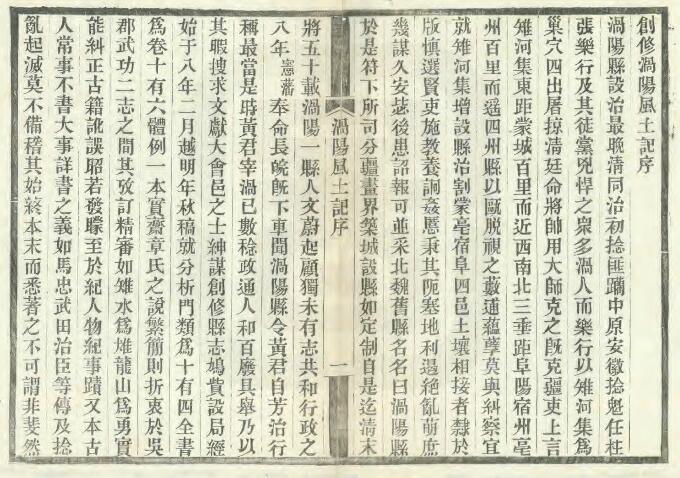 創修渦陽風土記序
渦陽縣設治最晚淸同治初捻匪躪中原安徽捻魁任柱
張樂行及其徒黨兇悍之衆多渦人而樂行以雉河集爲
巢穴四出屠掠淸廷命將帥用大師克之旣克疆吏上言
雉河集東距蒙城百里而近西南北三垂距阜陽宿州亳
州百里而遥四州縣以甌脫視之藪逋蘊孽莫與糾察宜
就雉河集增設縣治割蒙亳宿阜四邑土壤相接者隸於
版愼選賢吏施教養詗姦慝秉其阨塞地利遏絶亂萌庶
幾謀久安毖後患詔報可並采北魏舊縣名名曰渦陽縣
於是符下所司分疆畫界築城設縣如定制自是迄淸末
渦陽風土記序
一
將五十載渦陽一縣人文蔚起顧獨未有志共和行政之
八年憲藩奉命長皖旣下車聞渦陽縣令黃君自芳治行
種最當是時黃君宰渦已數稔政通人和百廢具舉乃以
其暇搜求文獻大會邑之士紳謀創修縣志鳩貲設局經
始于八年二月越明年秋稿就分析門類爲十有四全書
爲卷十有六體例一本實齋章氏之說繁簡則折衷於吳
郡武功二志之間其攷訂精審如雉水爲雄龍山爲勇實
能糾正古籍訛誤昭若發矇至於紀人物紀事蹟又本古
人常事不書大事詳書之義如馬忠武田治臣等傳及捻
亂起滅莫不備稽其始終本末而悉著之不可謂非斐然